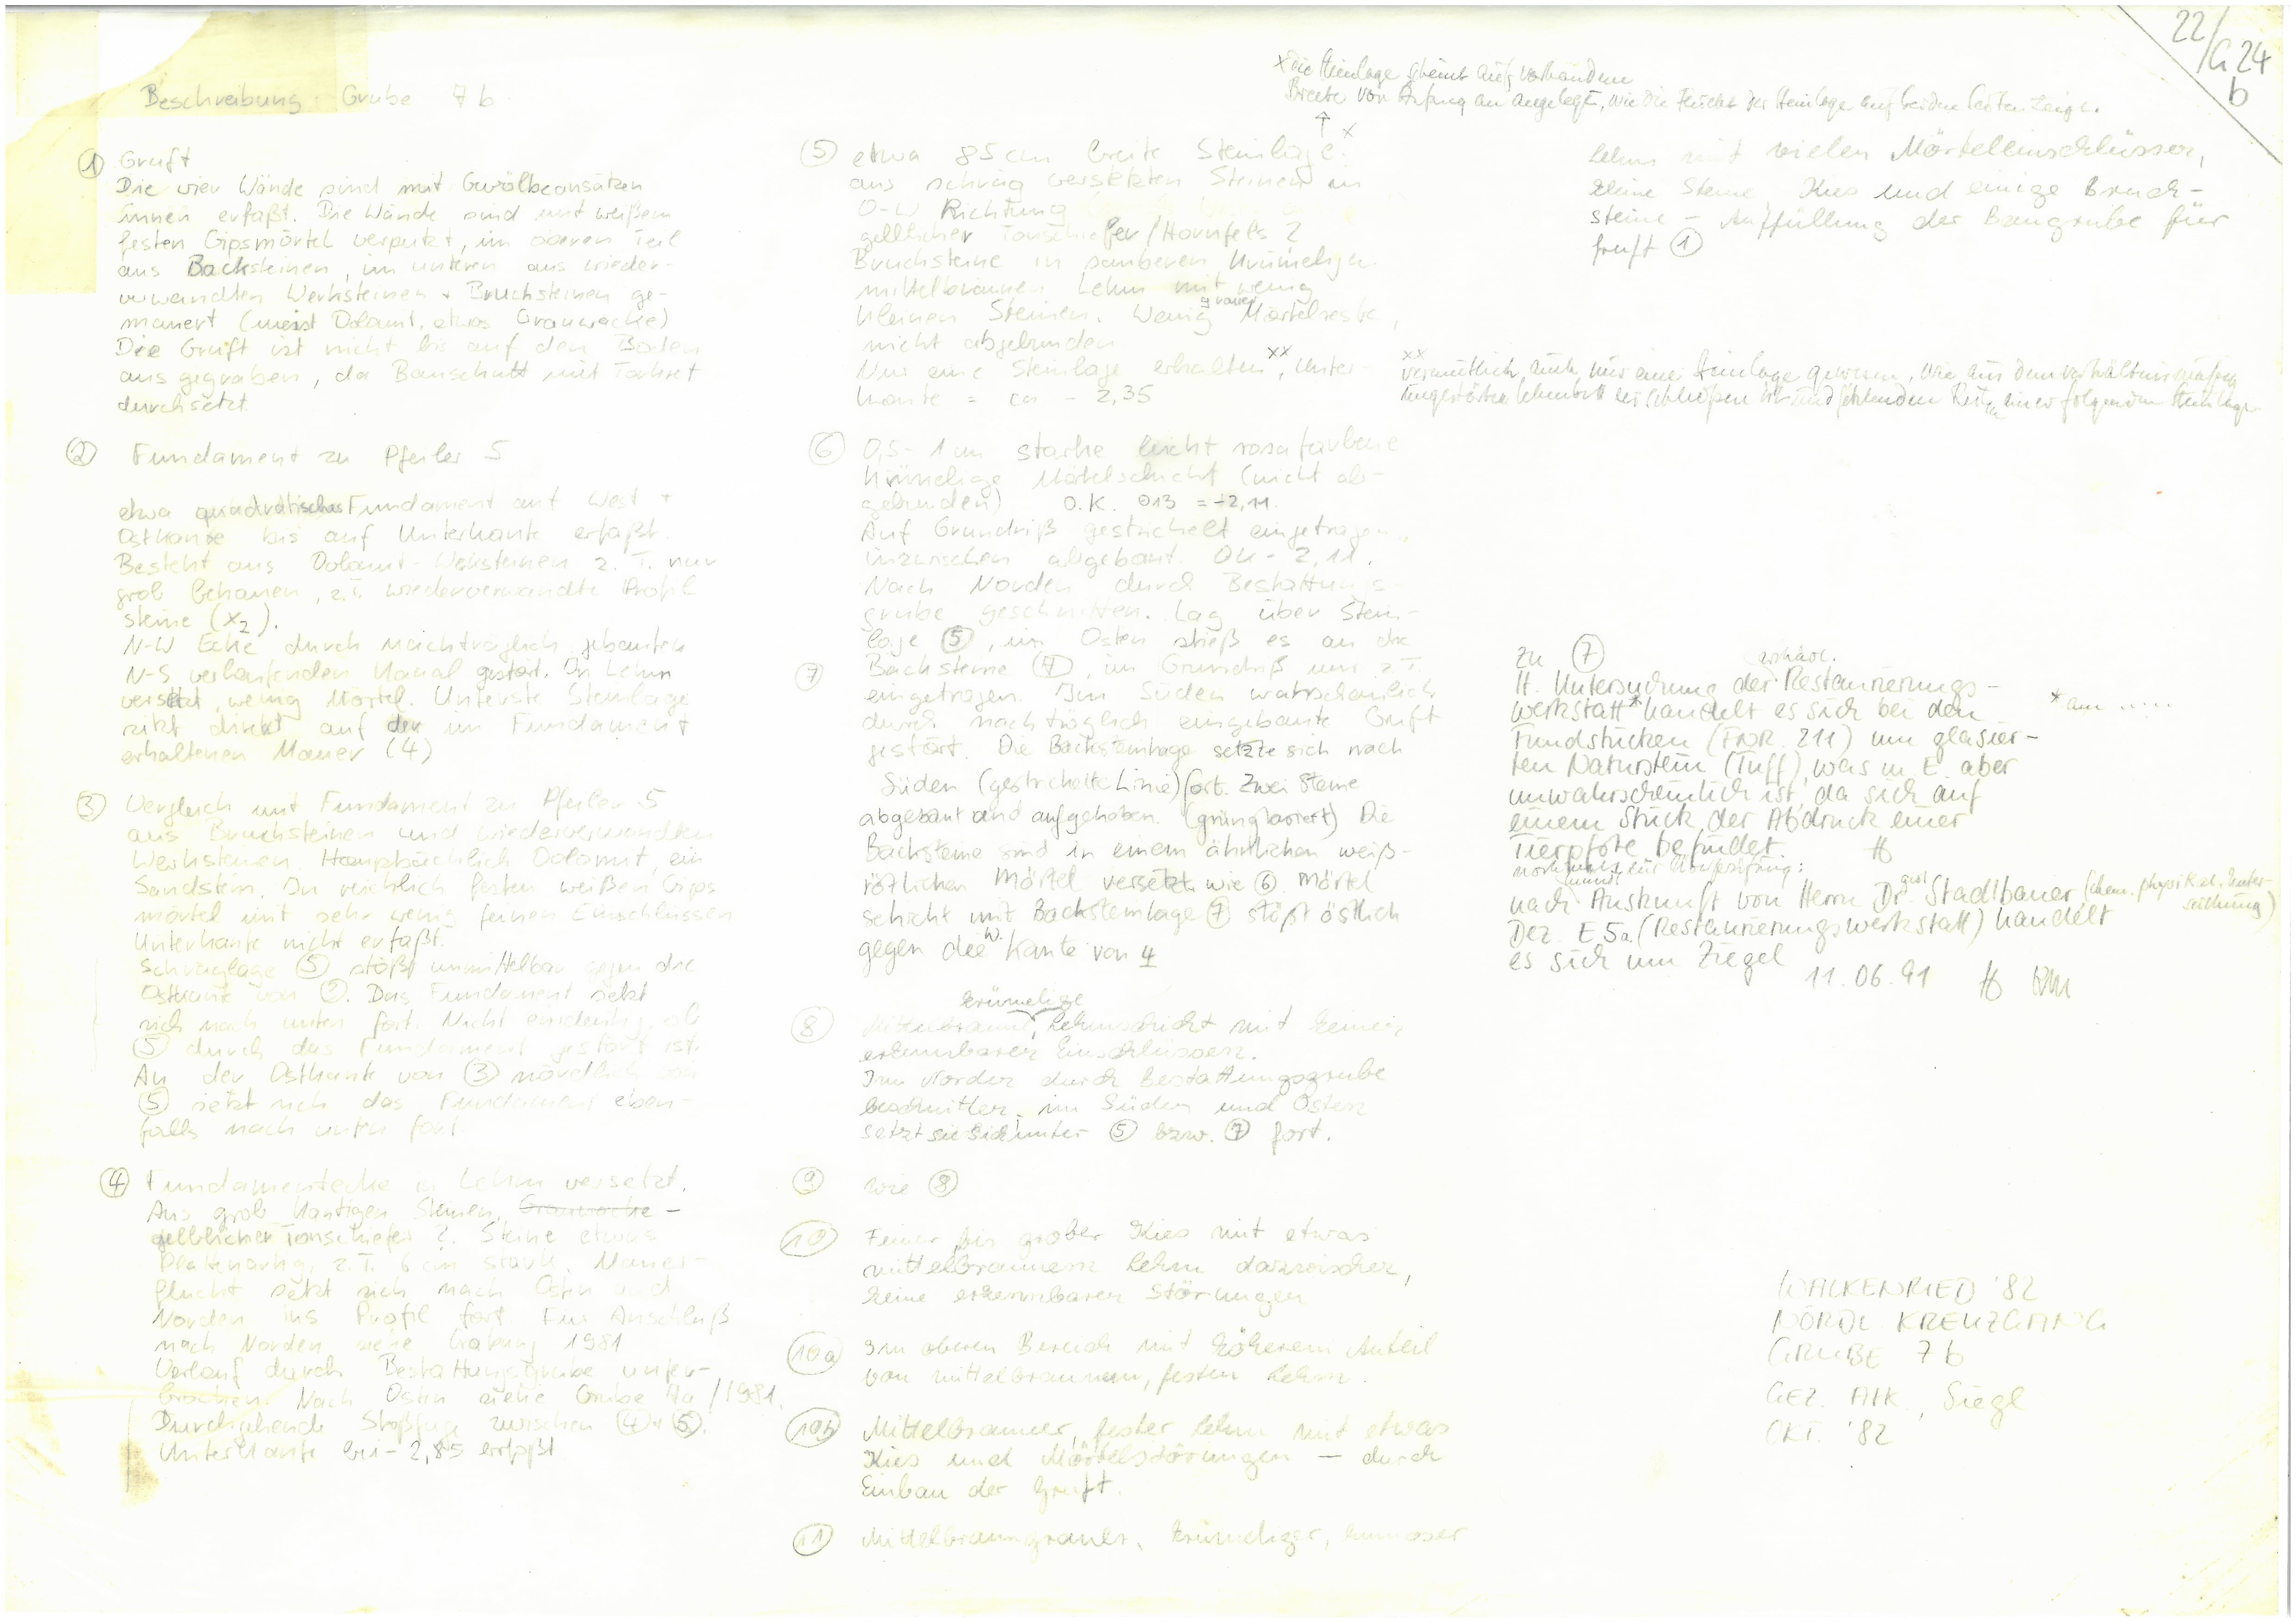 22/G 24
b
Beschreibung: Grube 7b
① Gruft
Die vier Wände sind mit Gewölbeansätzen
innen erfaßt. Die Wände sind mit weißem
festen Gipsmörtel verputzt, im oberen Teil
aus Backsteinen, im unteren aus wieder-
verwandten Werksteinen + Bruchsteinen ge-
mauert (meist Dolomit, etwas Grauwacke)
Die Gruft ist nicht bis auf den Boden
ausgegraben, da Bauschutt mit Torkret
durchsetzt.
② Fundament zu Pfeiler 5
etwa quadratisches Fundament auf West +
Ostkante bis auf Unterkante erfaßt.
Besteht aus Dolomit-Werksteinen z.T. nur
grob behauen, z.T. wiederverwandte Profil
steine (x2).
N-W Ecke durch nachträglich gebauten
N-S verlaufenden Kanal gestört. In Lehm
versetzt, wenig Mörtel. Unterste Steinlage
sitzt direkt auf der im Fundament
erhaltenen Mauer (4)
③ Vergleich mit Fundament zu Pfeiler 5
aus Bruchsteinen und wiederverwandten
Werksteinen. Hauptsächlich Dolomit, ein
Sandstein. In reichlich festen weißen Gips
mörtel mit sehr wenig feinen Einschlüssen
Unterkante nicht erfaßt.
Schräglage ⑤ stößt unmittelbar gegen die
Ostkante von ②. Das Fundament setzt
sich nach unten fort. Nicht eindeutig, ob
⑤ durch das Fundament gestört ist.
An der Ostkante von ③ nördlich von
⑤ setzt sich das Fundament eben-
falls nach unten fort.
④ Fundamentecke in Lehm versetzt.
Aus grob kantigen Steinen, Grauwacke -
gelblicher Tonschiefer ?. Steine etwas
Plattenartig, z.T. 6 cm stark. Mauer-
flucht setzt sich nach Osten und
Norden ins Profil fort. Für Anschluß
nach Norden siehe Grabung 1981
Verlauf durch Bestattungsgrube unter-
brochen. Nach Osten siehe Grube 7a/1981.
Durchgehende Stoßfuge zwischen ④ + ⑤.
Unterkante bei - 2,85 erfaßt
x die Steinlage scheint auf vorhandene
Breite von Anfang an angelegt, wie die Flucht der Steinlage auf beiden Seiten zeigt.
⑤ etwa 85 cm breite Steinlage x
aus schräg versetzten Steinen in
O-W Richtung
gelblicher Tonschiefer/Hornfels ?
Bruchsteine in sauberen krümeligen
mittelbraunen Lehm mit wenig
kleinen Steinen. Wenig grauer Mörtelreste,
nicht abgebunden
Nur eine Steinlage erhalten xx, Unter-
kante = ca - 2,35
⑥ 0,5 - 1 cm starke leicht rosafarbene
krümelige Mörtelschicht (nicht ab-
gebunden) O.K. 013 = -2,11.
Auf Grundriß gestrichelt eingetragen,
inzwischen abgebaut. OK - 2,11.
Nach Norden durch Bestattungs-
grube geschnitten. Lag über Stein-
lage ⑤, im Osten stieß es an die
⑦ Backsteine ⑦, im Grundriß nur z.T.
eingetragen. Im Süden wahrscheinlich
durch nachträglich eingebaute Gruft
gestört. Die Backsteinlage setzte sich nach
Süden (gestrichelte Linie) fort. Zwei Steine
abgebaut und aufgehoben. (grünglasiert) Die
Backsteine sind in einem ähnlichen weiß-
rötlichen Mörtel versetzt wie ⑥. Mörtel
schicht mit Backsteinlage ⑦ stößt östlich
gegen die W. Kante von 4
⑧ Mittelbraune, krümelige Lehmschicht mit keinen
erkennbaren Einschlüssen.
Im Norden durch Bestattungsgrube
beschnitten, im Süden und Osten
setzt sie sich unter ⑤ bzw. ⑦ fort.
⑨ wie ⑧
⑩ Feiner bis grober Kies mit etwas
mittelbraunem Lehm dazwischen,
keine erkennbaren Störungen
10a Im oberen Bereich mit höherem Anteil
von mittelbraunem, festen Lehm.
10b Mittelbrauner, fester Lehm mit etwas
Kies und Mörtelstörungen - durch
Einbau der Gruft.
⑪ Mittelbraungrauer, krümeliger, humoser
Lehm mit vielen Mörteleinschlüssen,
kleine Steine, Kies und einige Bruch-
steine - Auffüllung der Baugrube für
Gruft ①
xx vermutlich auch nur eine Steinlage gewesen, wie aus dem verhältnismäßig
ungestörten Lehmbett zu schließen ist und fehlenden Resten einer folgenden Steinlage
zu ⑦
lt. Untersuchung der Restaurierungs-
werkstatt * handelt es sich bei den * am .....
Fundstücken (FNR. 211) um glasier-
ten Naturstein (Tuff), was m. E. aber
unwahrscheinlich ist, da sich auf
einem Stück der Abdruck einer
Tierpfote befindet.
nochmals zur Überprüfung:
nach Auskunft von Herrn Dr. Stadlbauer (chem. physikal. Unter-
suchung)
Dez. E 5a (Restaurierungswerkstatt) handelt
es sich um Ziegel
11.06.91
WALKENRIED '82
NÖRDL. KREUZGANG
GRUBE 7b
GEZ. AIK., Siegl
OKT. '82